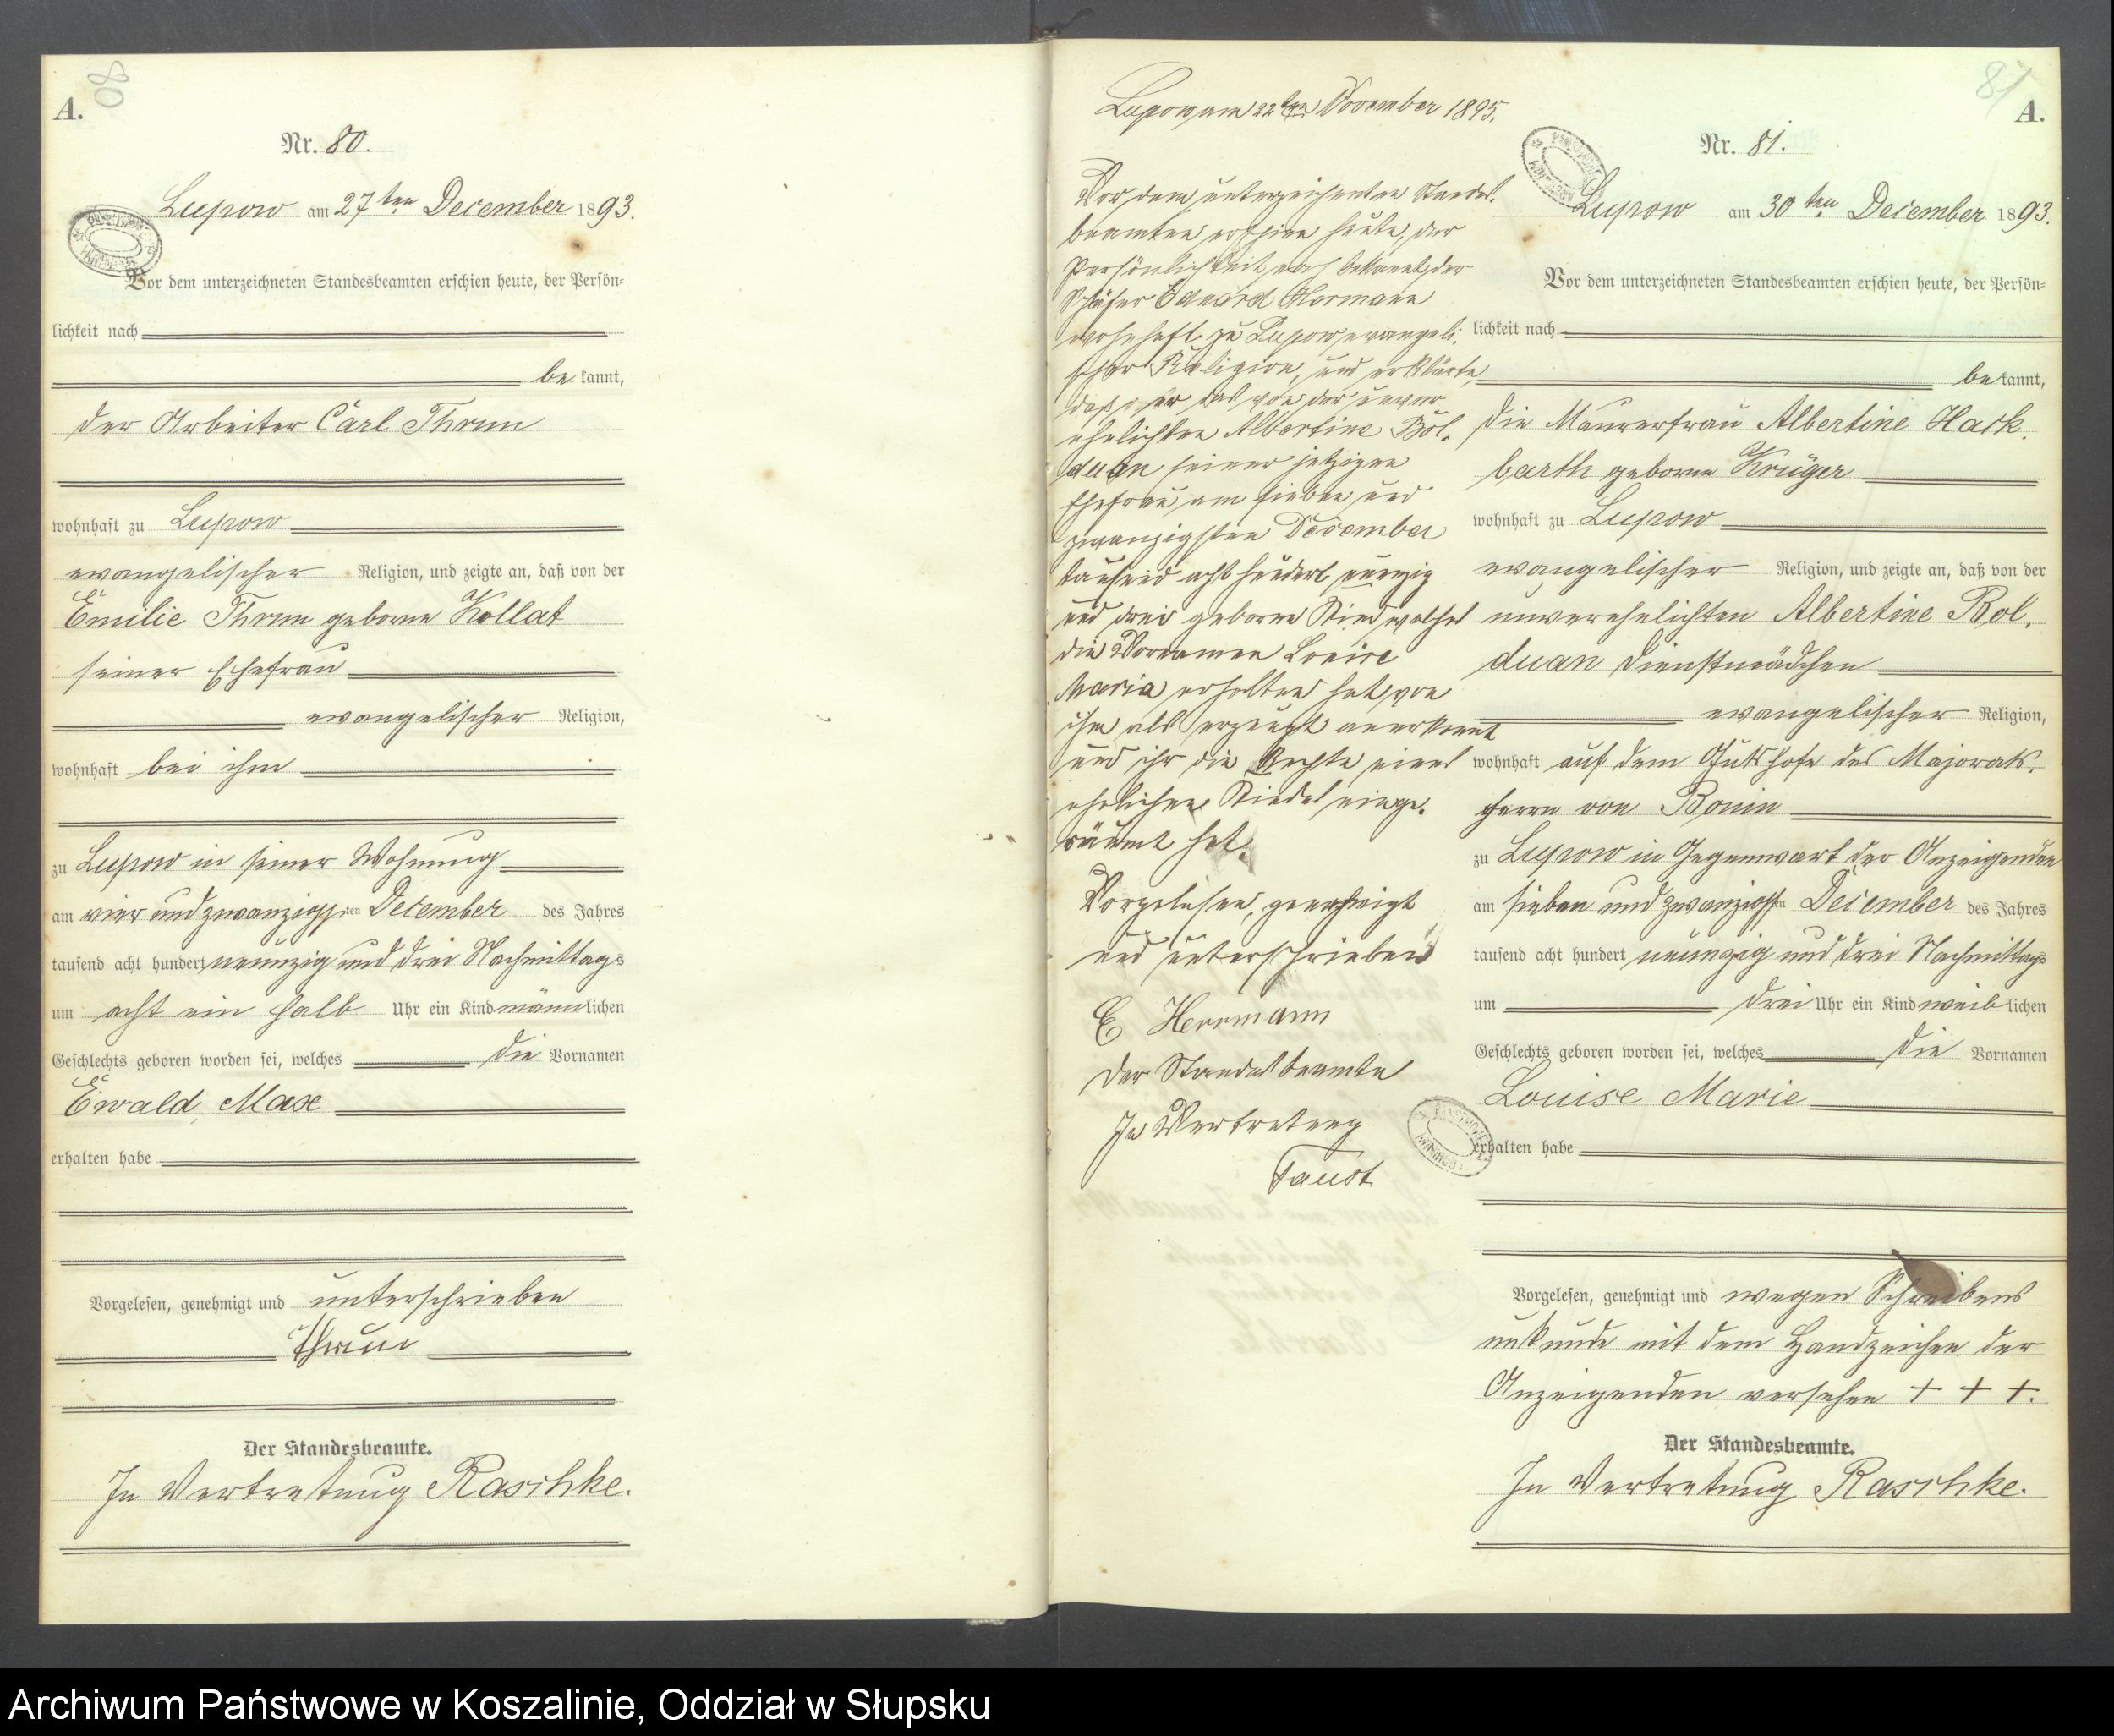 A.
80
Nr. 80.
Lupow am 27ten December 1893.
Vor dem unterzeichneten Standesbeamten erschien heute, der Persön=
lichkeit nach
be kannt,
der Arbeiter Carl Thrun
wohnhaft zu Lupow
evangelischer Religion, und zeigte an, daß von der
Emilie Thrun geborne Kollat
seiner Ehefrau
evangelischer Religion,
wohnhaft bei ihm
zu Lupow in seiner Wohnung
am vier und zwanzigsten December des Jahres
tausend acht hundert neunzig und drei Nachmittags
um acht ein halb Uhr ein Kind männlichen
Geschlechts geboren worden sei, welches die Vornamen
Ewald Max
erhalten habe
Vorgelesen, genehmigt und unterschrieben
Thrun
Der Standesbeamte.
In Vertretung Raschke.
Lupow am 22ten November 1895.
Vor dem unterzeichneten Standes-
beamten erschien heute, der
Persönlichkeit nach bekannt, der
Schäfer Eduard Hermann
wohnhaft zu Lupow evangeli-
scher Religion, und erklärte,
daß er das von der unver
ehelichten Albertine Bol-
duan seiner jetzigen
Ehefrau am sieben und
zwanzigsten December
tausend acht hundert neunzig
und drei geborne Kind welches
die Vornamen Louise
Maria erhalten hat, von
ihm als erzeugt anerkennt
und ihr die Rechte eines
ehelichen Kindes einge-
räumt hat.
Vorgelesen, genehmigt
und unterschrieben
E Herrmann
Der Standesbeamte
In Vertretung
Faust
81
A.
Nr. 81.
Lupow am 30ten December 1893.
Vor dem unterzeichneten Standesbeamten erschien heute, der Persön=
lichkeit nach
be kannt,
die Maurerfrau Albertine Hack-
barth geborne Krüger
wohnhaft zu Lupow
evangelischer Religion, und zeigte an, daß von der
unverehelichten Albertine Bol-
duan Dienstmädchen
evangelischer Religion,
wohnhaft auf dem Gutshofe des Majorats-
herrn von Bonin
zu Lupow in Gegenwart der Anzeigenden
am sieben und zwanzigsten December des Jahres
tausend acht hundert neunzig und drei Nachmittags
um drei Uhr ein Kind weiblichen
Geschlechts geboren worden sei, welches die Vornamen
Louise Marie
erhalten habe
Vorgelesen, genehmigt und wegen Schreibens
unkunde mit dem Handzeichen der
Anzeigenden versehen + + +.
Der Standesbeamte.
In Vertretung Raschke.
Archiwum Państwowe w Koszalinie, Oddział w Słupsku